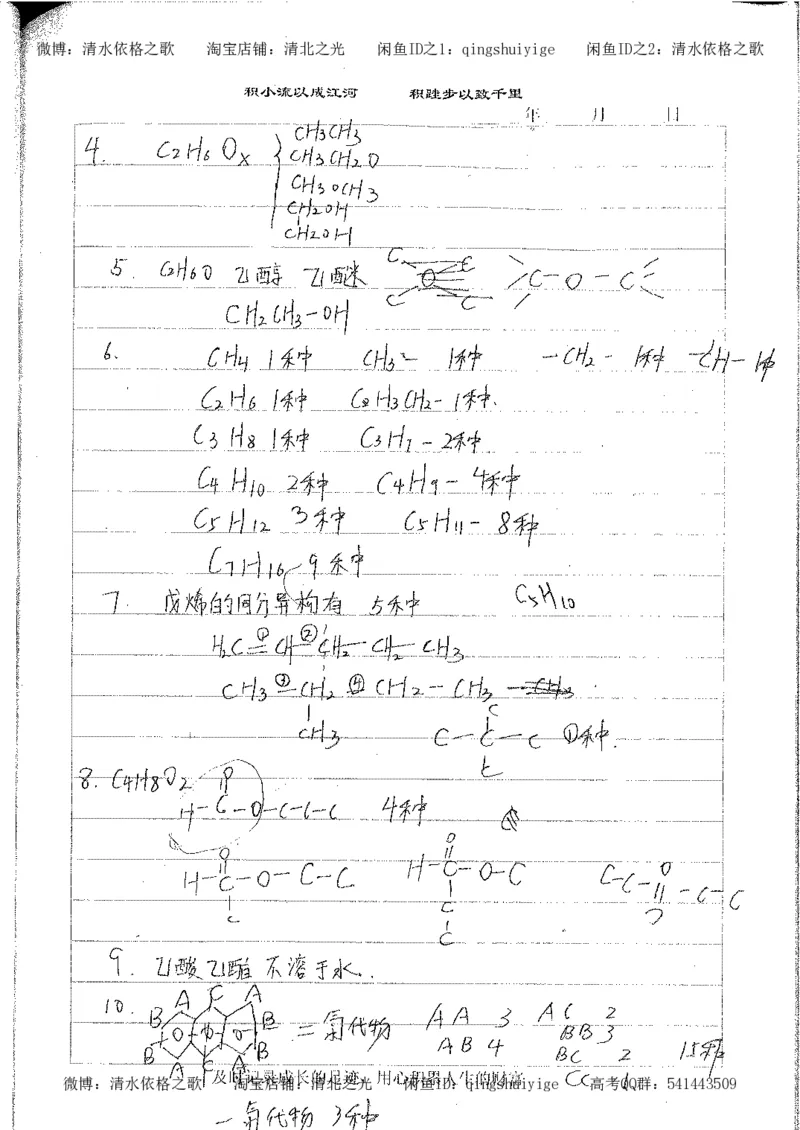 微博：清水依格之歌 淘宝店铺：清北之光 闲鱼ID之1：qingshuiyige 闲鱼ID之2：清水依格之歌
积小流以成江河 积跬步以致千里
年 月 日
4. C2H6Ox
CH3CH3
CH3CH2O
CH3OCH3
CH2OH
CH2OH
5. C2H6O 乙醇 乙醚 C C O C C C-O-C
CH2CH3-OH
6. CH4 1种 CH3- 1种 -CH2- 1种 -CH- 1种
C2H6 1种 C2H3CH2- 1种.
C3H8 1种 C3H7-2种
C4H10 2种 C4H9- 4种
C5H12 3种 C5H11- 8种
C7H16 9种
7. 戊烯的同分异构有 5种 C5H10
H2C=①CH-②CH2-CH2-CH3
CH3-③CH2-④CH2-CH3
CH3 C-C-C ①种.
C
C
8. C4H8O2
H-C-O-C-C-C 4种
O
H-C-O-C-C H-C-O-C C-C-C-C
C
C
C
9. 乙酸乙酯不溶于水.
10. B A F A B 二氯代物 AA 3 AC 2
AB 4 BB 3
BC 2 15种
B A C A B
及时记录成长的足迹，用心积累人生的财富 CC 1
微博：清水依格之歌 淘宝店铺：清北之光 闲鱼ID之1：qingshuiyige 高考QQ群：541443509
一氯代物 3种